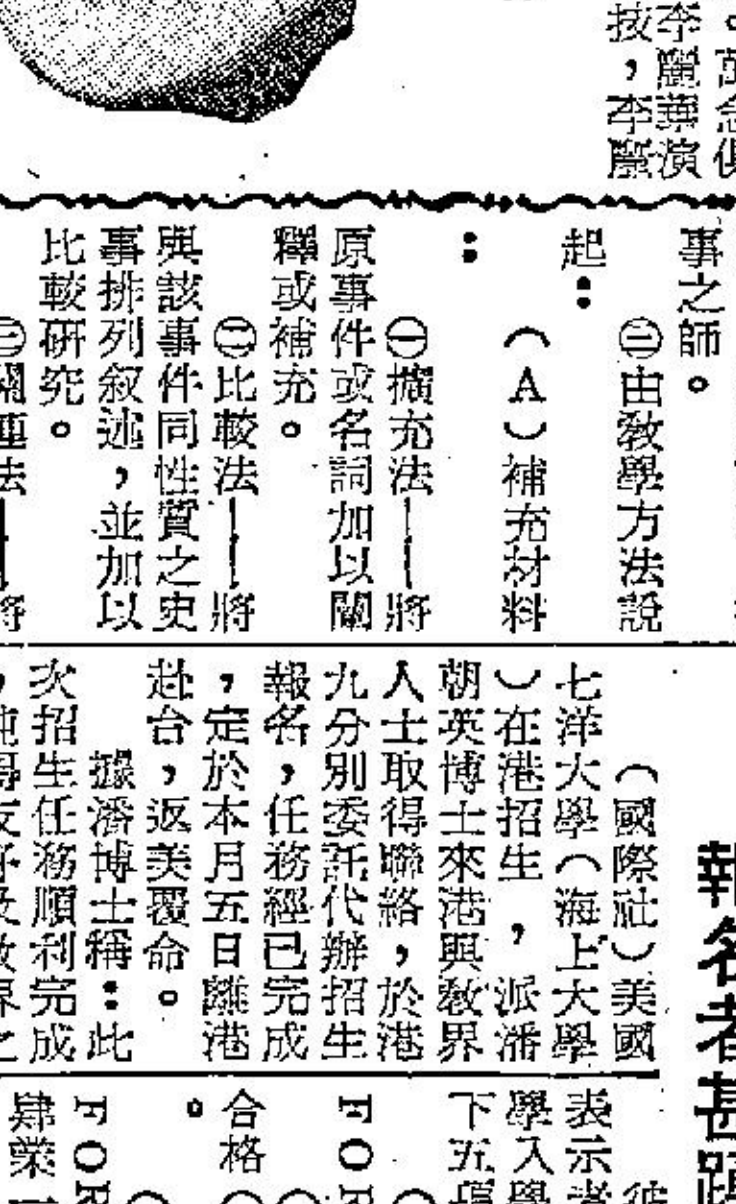 事之師。
㊂由敎學方法說
起：
（A）補充材料
：
㊀擴充法——將
原事件或名詞加以闡
釋或補充。
㊁比較法——將
與該事件同性質之史
事排列叙述，並加以
比較研究。
報名者甚
（國際社）美國
七洋大學（海上大學
）在港招生，派潘
朝英博士來港與敎界
人士取得聯絡，於港
九分別委託代辦招生
報名，任務經已完成
，定於本月五日離港
赴台，返美覆命。
據潘博士稱：此
次招生任務順利完成
表示者
學入學
下五
FOR
合格
。
FOR
肄業